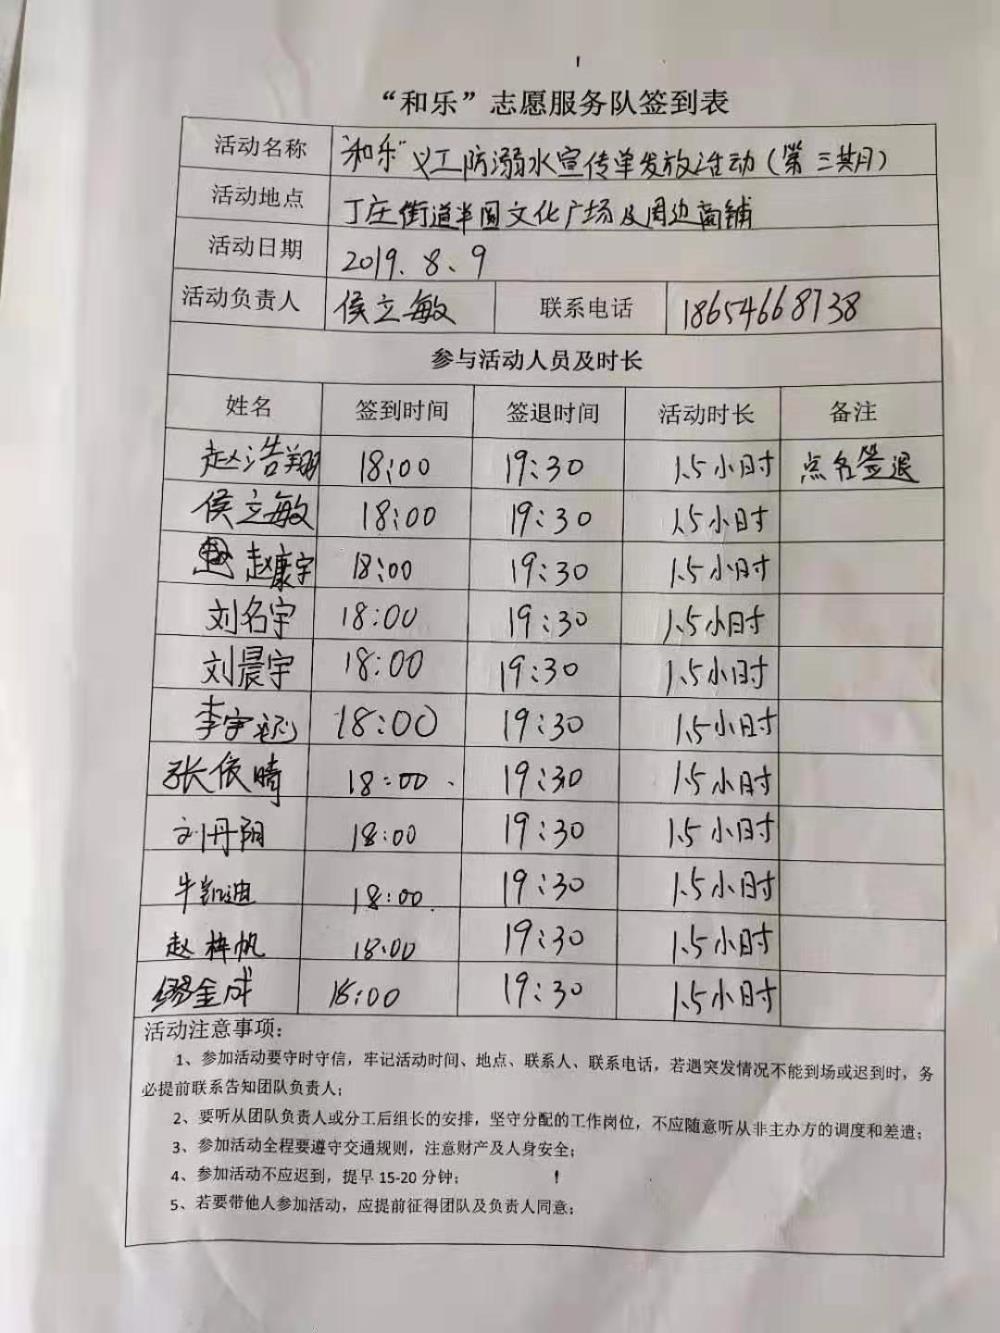 “和乐”志愿服务队签到表
活动名称 “和乐”义工防溺水宣传单发放活动(第三期)
活动地点 丁庄街道半园文化广场及周边商铺
活动日期 2019.8、9
活动负责人 侯立敏 联系电话 18654668738
参与活动人员及时长
姓名 签到时间 签退时间 活动时长 备注
赵浩翔 18:00 19:30 1.5小时 点名签退
侯立敏 18:00 19:30 1.5小时
赵康宇 18:00 19:30 1.5小时
刘名宇 18:00 19:30 1.5小时
刘晨宇 18:00 19:30 1.5小时
李宇 18:00 19:30 1.5小时
张依晴 18:00 19:30 1.5小时
刘丹阳 18:00 19:30 1.5小时
牛凯迪 18:00 19:30 1.5小时
赵梓帆 18:00 19:30 1.5小时
缪金成 18:00 19:30 1.5小时
活动注意事项:
1、参加活动要守时守信,牢记活动时间、地点、联系人、联系电话,若遇突发情况不能到场或迟到时,务
必提前联系告知团队负责人;
2、要听从团队负责人或分工后组长的安排,坚守分配的工作岗位,不应随意听从非主办方的调度和差遣;
3、参加活动全程要遵守交通规则,注意财产及人身安全;
4、参加活动不应迟到,提早 15-20 分钟;
5、若要带他人参加活动,应提前征得团队及负责人同意;